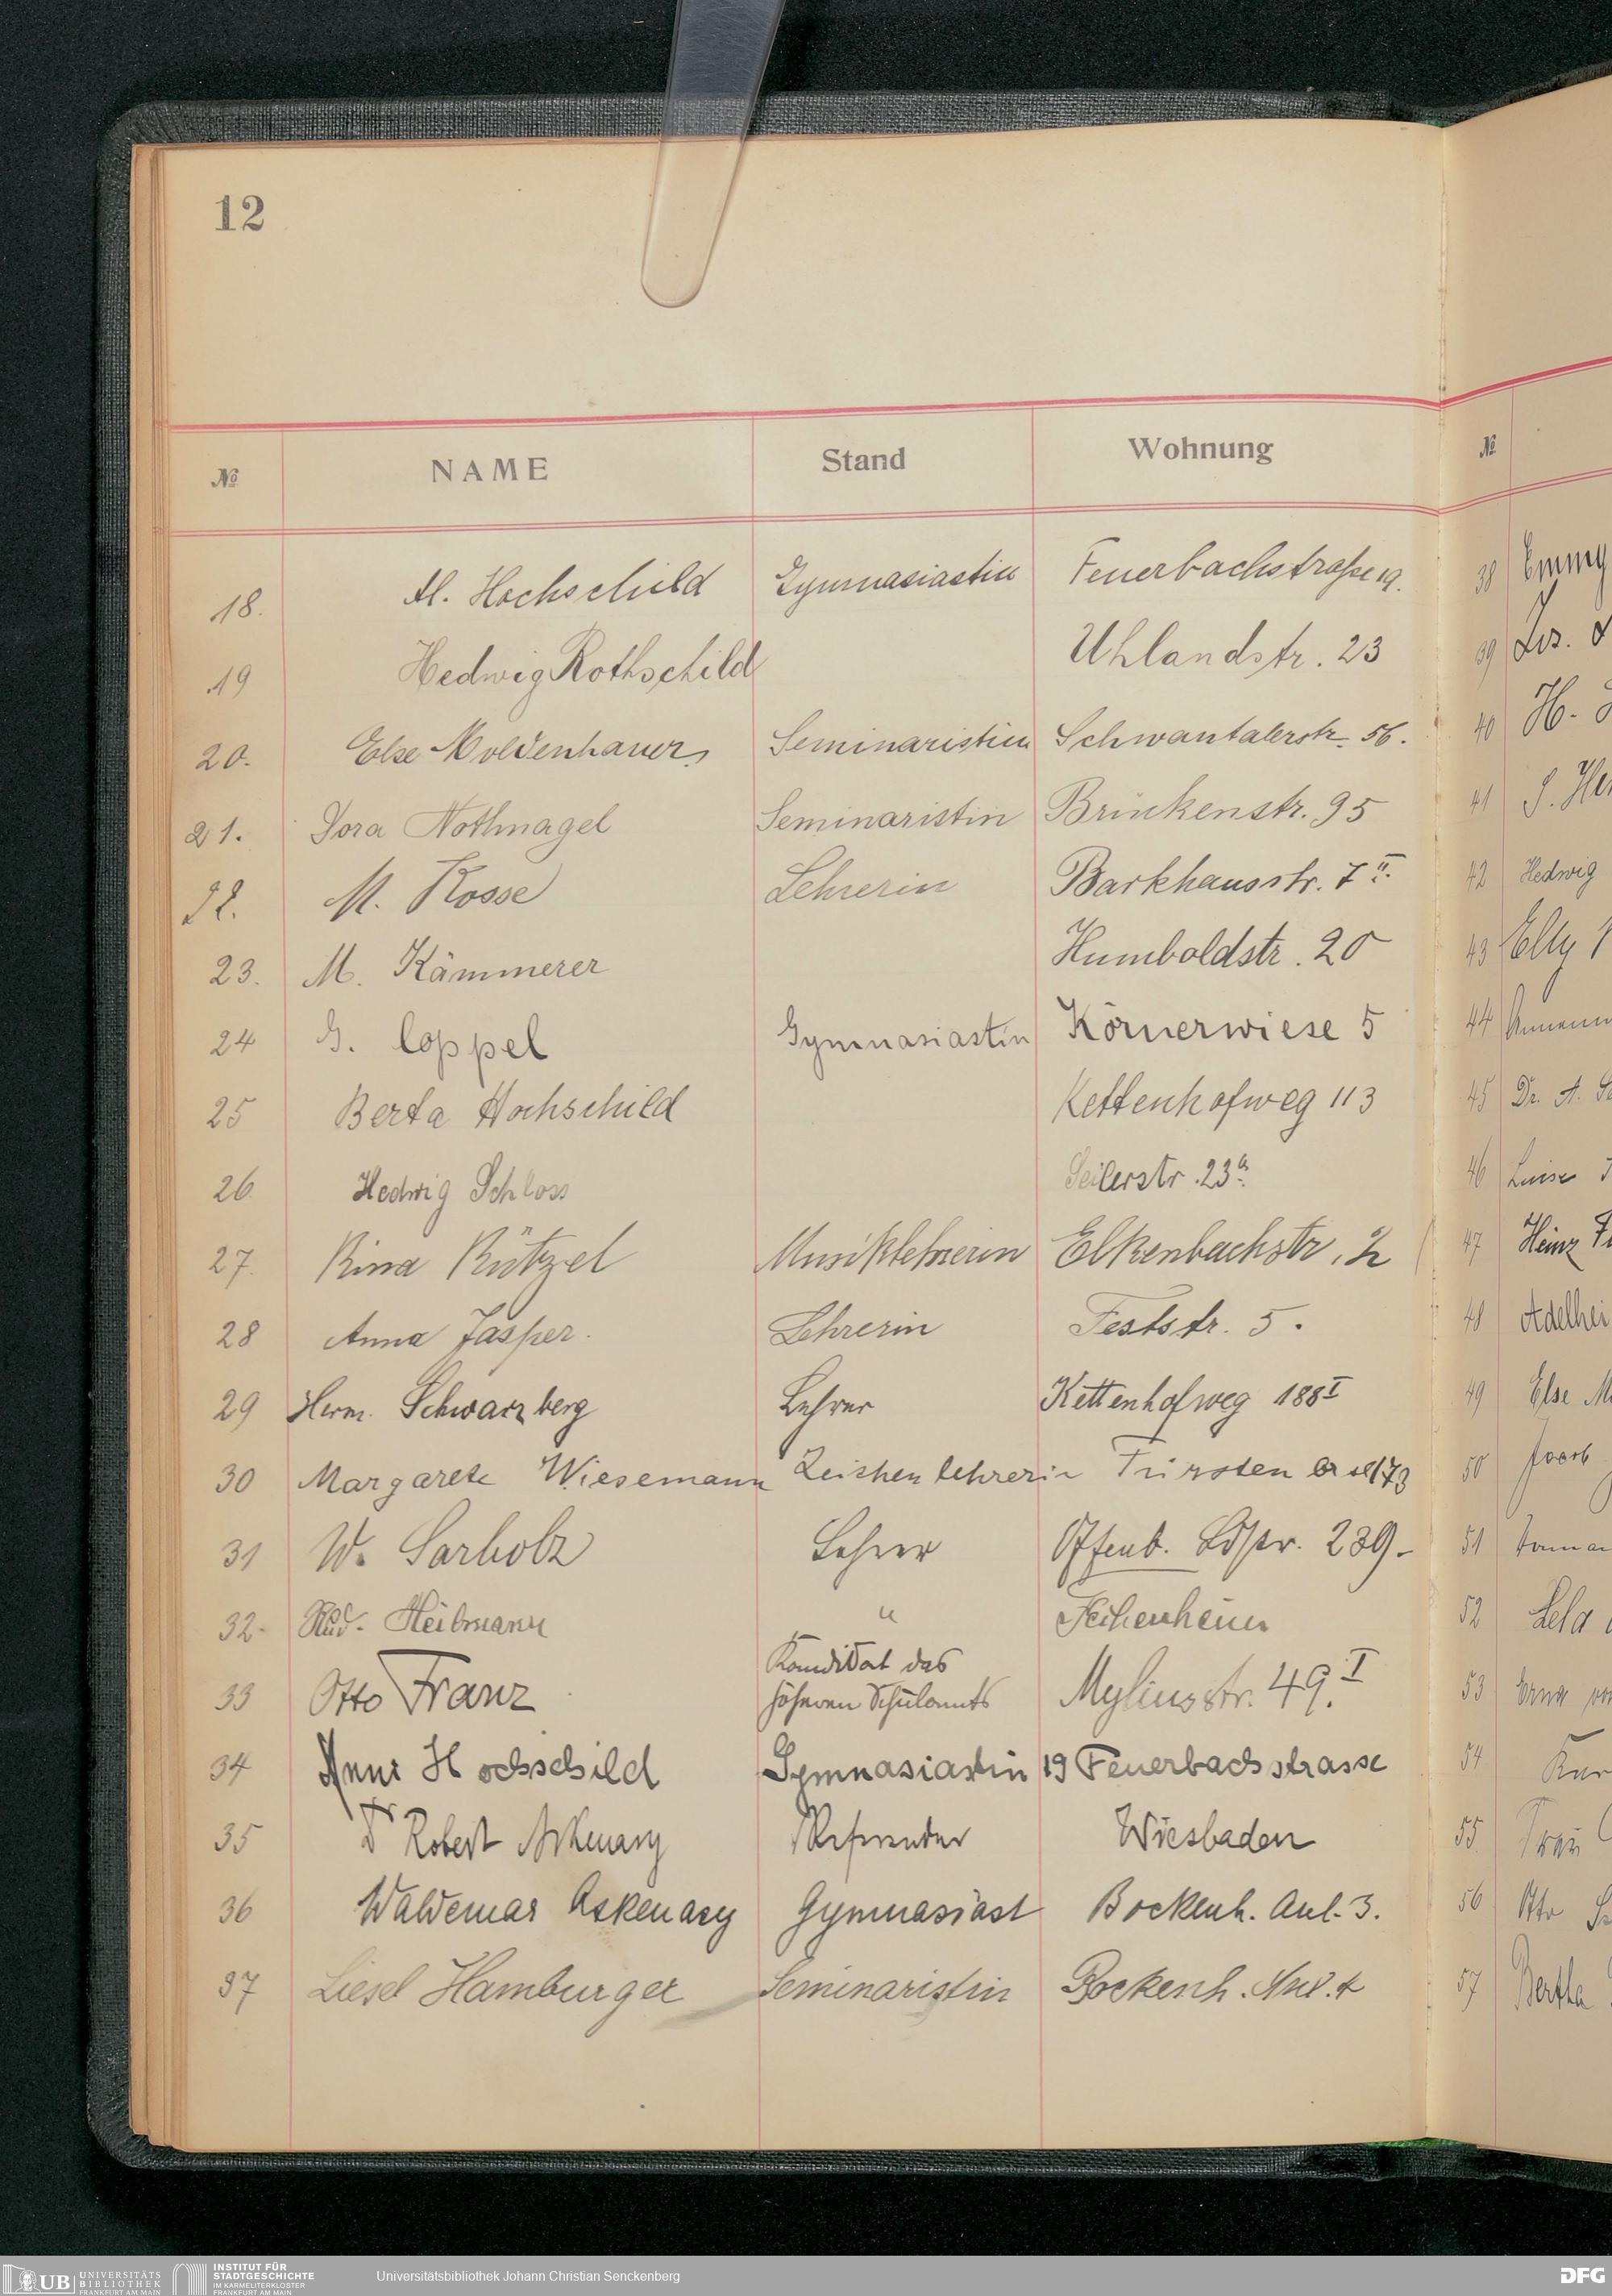 12
№ NAME Stand Wohnung
18. A. Hochschild Gymnasiastin Feuerbachstraße 19.
19 Hedwig Rothschild Uhlandstr. 23
20. Else Moldenhauer, Seminaristin Schwantalerstr. 56.
21. Dora Nothnagel Seminaristin Brückenstr. 95
22. M. Rosse Lehrerin Barkhausstr. 7 II.
23. M. Kämmerer Humboldstr. 20
24 G. Coppel Gymnasiastin Körnerwiese 5
25 Berta Hochschild Kettenhofweg 113
26 Hedwig Schloss Seilerstr. 23a.
27. Rina Musiklehrerin Elkenbachstr. 2
28 Anna Jasper. Lehrerin Feststr. 5.
29 Herm. Schwarzberg Lehrer Kettenhofweg 188 I
30 Margarete Wiesemann Zeichenlehrerin 173
31 W. Sarholz Lehrer Offenb. Ldstr. 239.
32. Rud. Heilmann " Fechenheim
33 Otto Franz Kandidat des
höheren Schulamts Mylinsstr. 49. I
34 Anni Hochschild Gymnasiastin 19 Feuerbachstrasse
35 Dr Robert Askenasy Referendar Wiesbaden
36 Waldemar Askenasy Gymnasiast Bockenh. Anl. 3.
37 Liesel Hamburger Seminaristin Bockenh. Anl. 4
№
38 Emmy
39
40 H.
41 S.
42 Hedwig
43 Elly
44
45 Dr. A.
46 Luise
47 Heinz
48 Adelhei
49 Else M
50 Jacob
51
52 Lela
53 Erna
54
55 Frau
56 Otto
57 Bertha
UB UNIVERSITÄTS
BIBLIOTHEK
FRANKFURT AM MAIN
INSTITUT FÜR
STADTGESCHICHTE
IM KARMELITERKLOSTER
FRANKFURT AM MAIN
Universitätsbibliothek Johann Christian Senckenberg
DFG